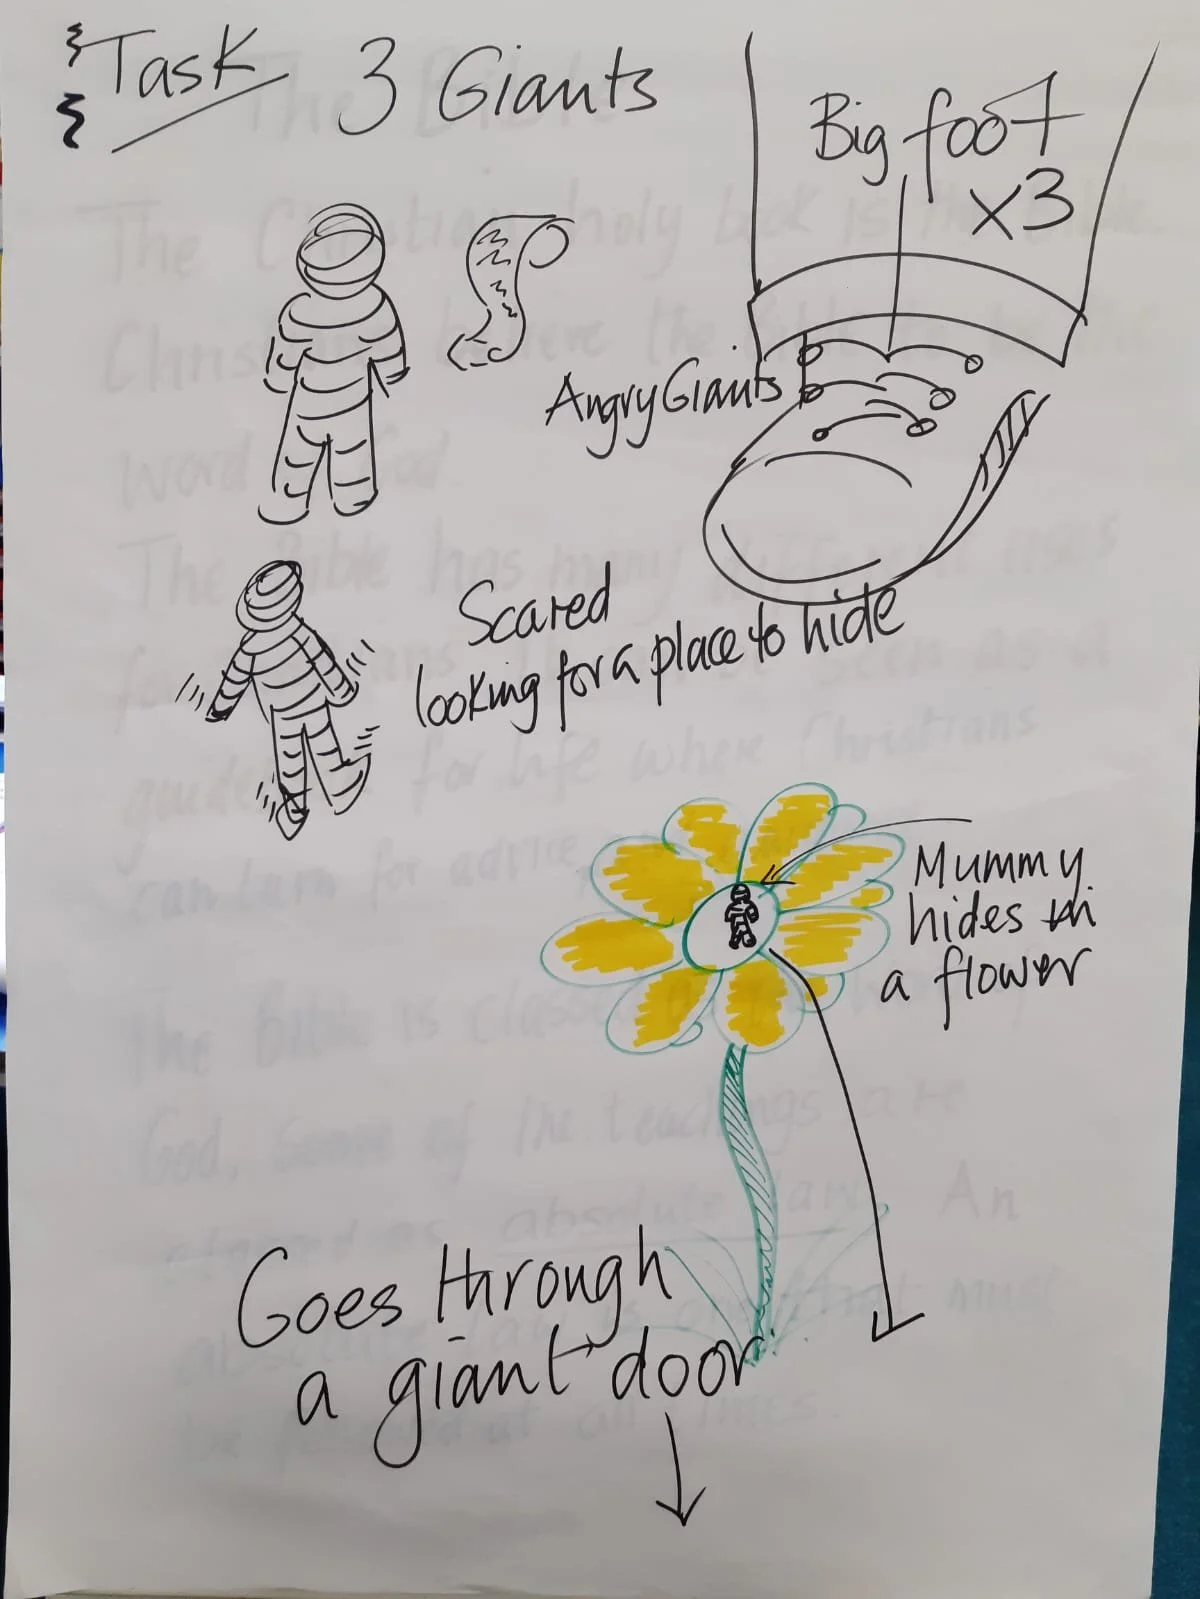 Task 3 Giants
Big foot
x3
Angry Giants
Scared
looking for a place to hide
Mummy
hides in
a flower
Goes through
a giant door